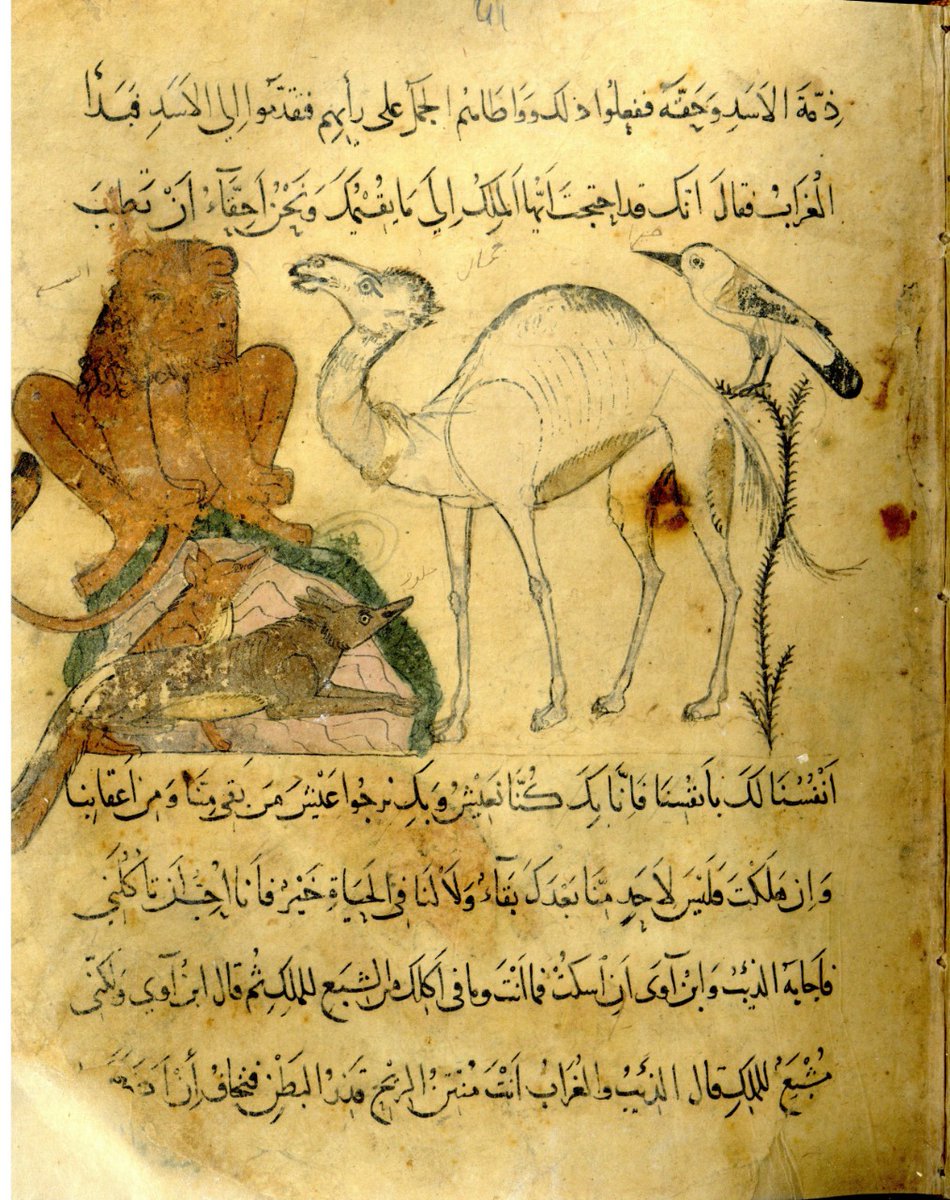 ذِمّةَ الاَسَدِ وَحَقَّهُ ففعلُوا ذلك وواطاهُم الجمل على رأيهِم فتقدّموا الي الاَسَدِ فبَدَأ
الْغرَابُ فقالَ انّك قد احتجت ايّها الملِكُ اِلي مَا يُقيْمُكَ وَنَحْنُ اَحِقّاءُ اَنْ تطيبَ
اَنْفُسُنَا لَكَ بأنفُسنَا فَانّا بِكَ كُنّا نَعيْشُ وَبِكَ نرجُوا عَيْشَ مَن بَقي مِنّا وَمِن اَعقابنا
وَاِن هَلَكْتَ فلَيْسَ لاَحدٍ مِنّا بَعْدَكَ بَقآءٌ وَلاَ لنا في الحيَاةِ خَيْرٌ فانا اُحِبُّ اَن تاْكُلَني
فاَجابهُ الذيبُ وَابنُ آوَى اَن اسكت فما انْتَ وما في اَكلِك من الشِبَع للملكِ ثم قالَ ابن آوي ولكنّى
مُشْبَعُ للملكِ قال الذيبُ والغُرابُ انْتَ مُنْتِنُ الريْحِ قذِرُ البَطْنِ فنخافُ اِنْ